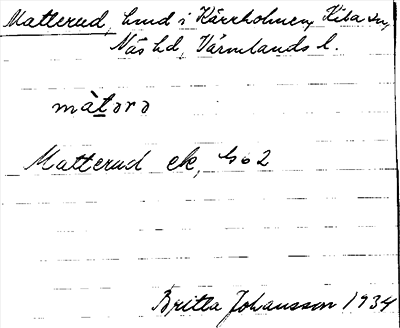 Matterud, hmd i Kärrholmen, Kila sn,
Näs hd, Värmlands l.
màtərə
Matterud ek, bo 2
Britta Johansson 1934